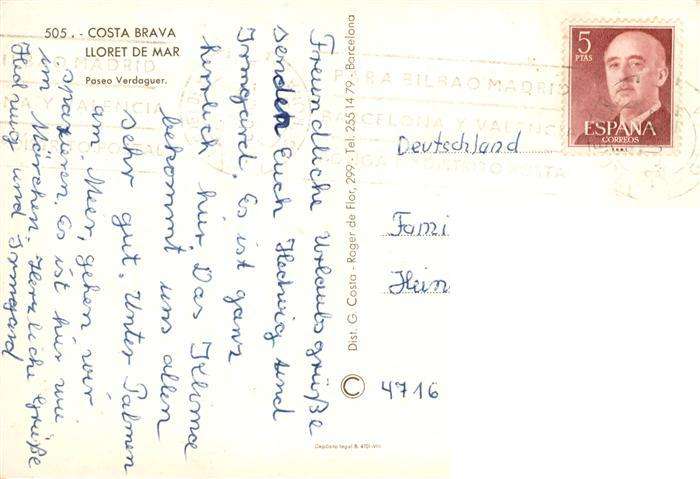 505. - COSTA BRAVA
LLORET DE MAR
Paseo Verdaguer.
Freundliche Urlaubsgrüße
senden Euch Hedwig und
Irmgard. Es ist ganz
herrlich hier. Das Klima
bekommt uns allen
sehr gut. Unter Palmen
am Meer, gehen wir
spazieren. Es ist hier wie
im Märchen. Herzliche Grüße
Hedwig und Irmgard
Dist. G. Costa - Roger de Flor, 299 - Tel. 255 14 79 - Barcelona
5
PTAS
ESPAÑA
CORREOS
PARA BILBAO MADRID
BARCELONA Y VALENCIA
Deutschland
Fami
Hein
C 4716